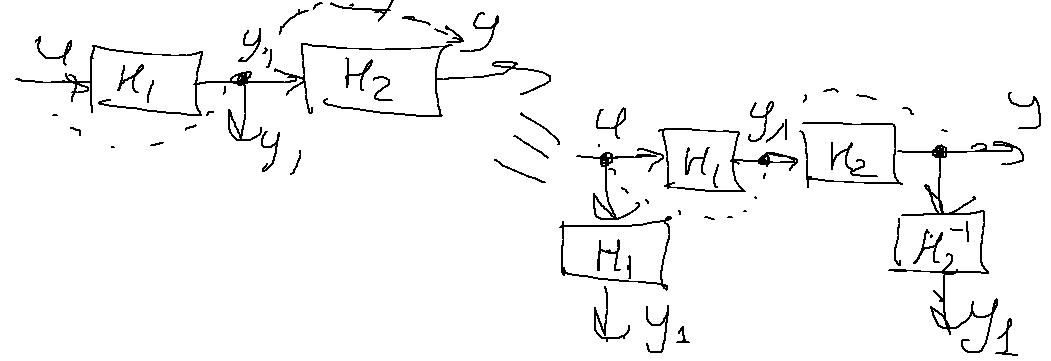 u H₁ y₁ H₂ y
y₁
u H₁ y₁ H₂ y
H₁ H₂⁻¹
y₁ y₁